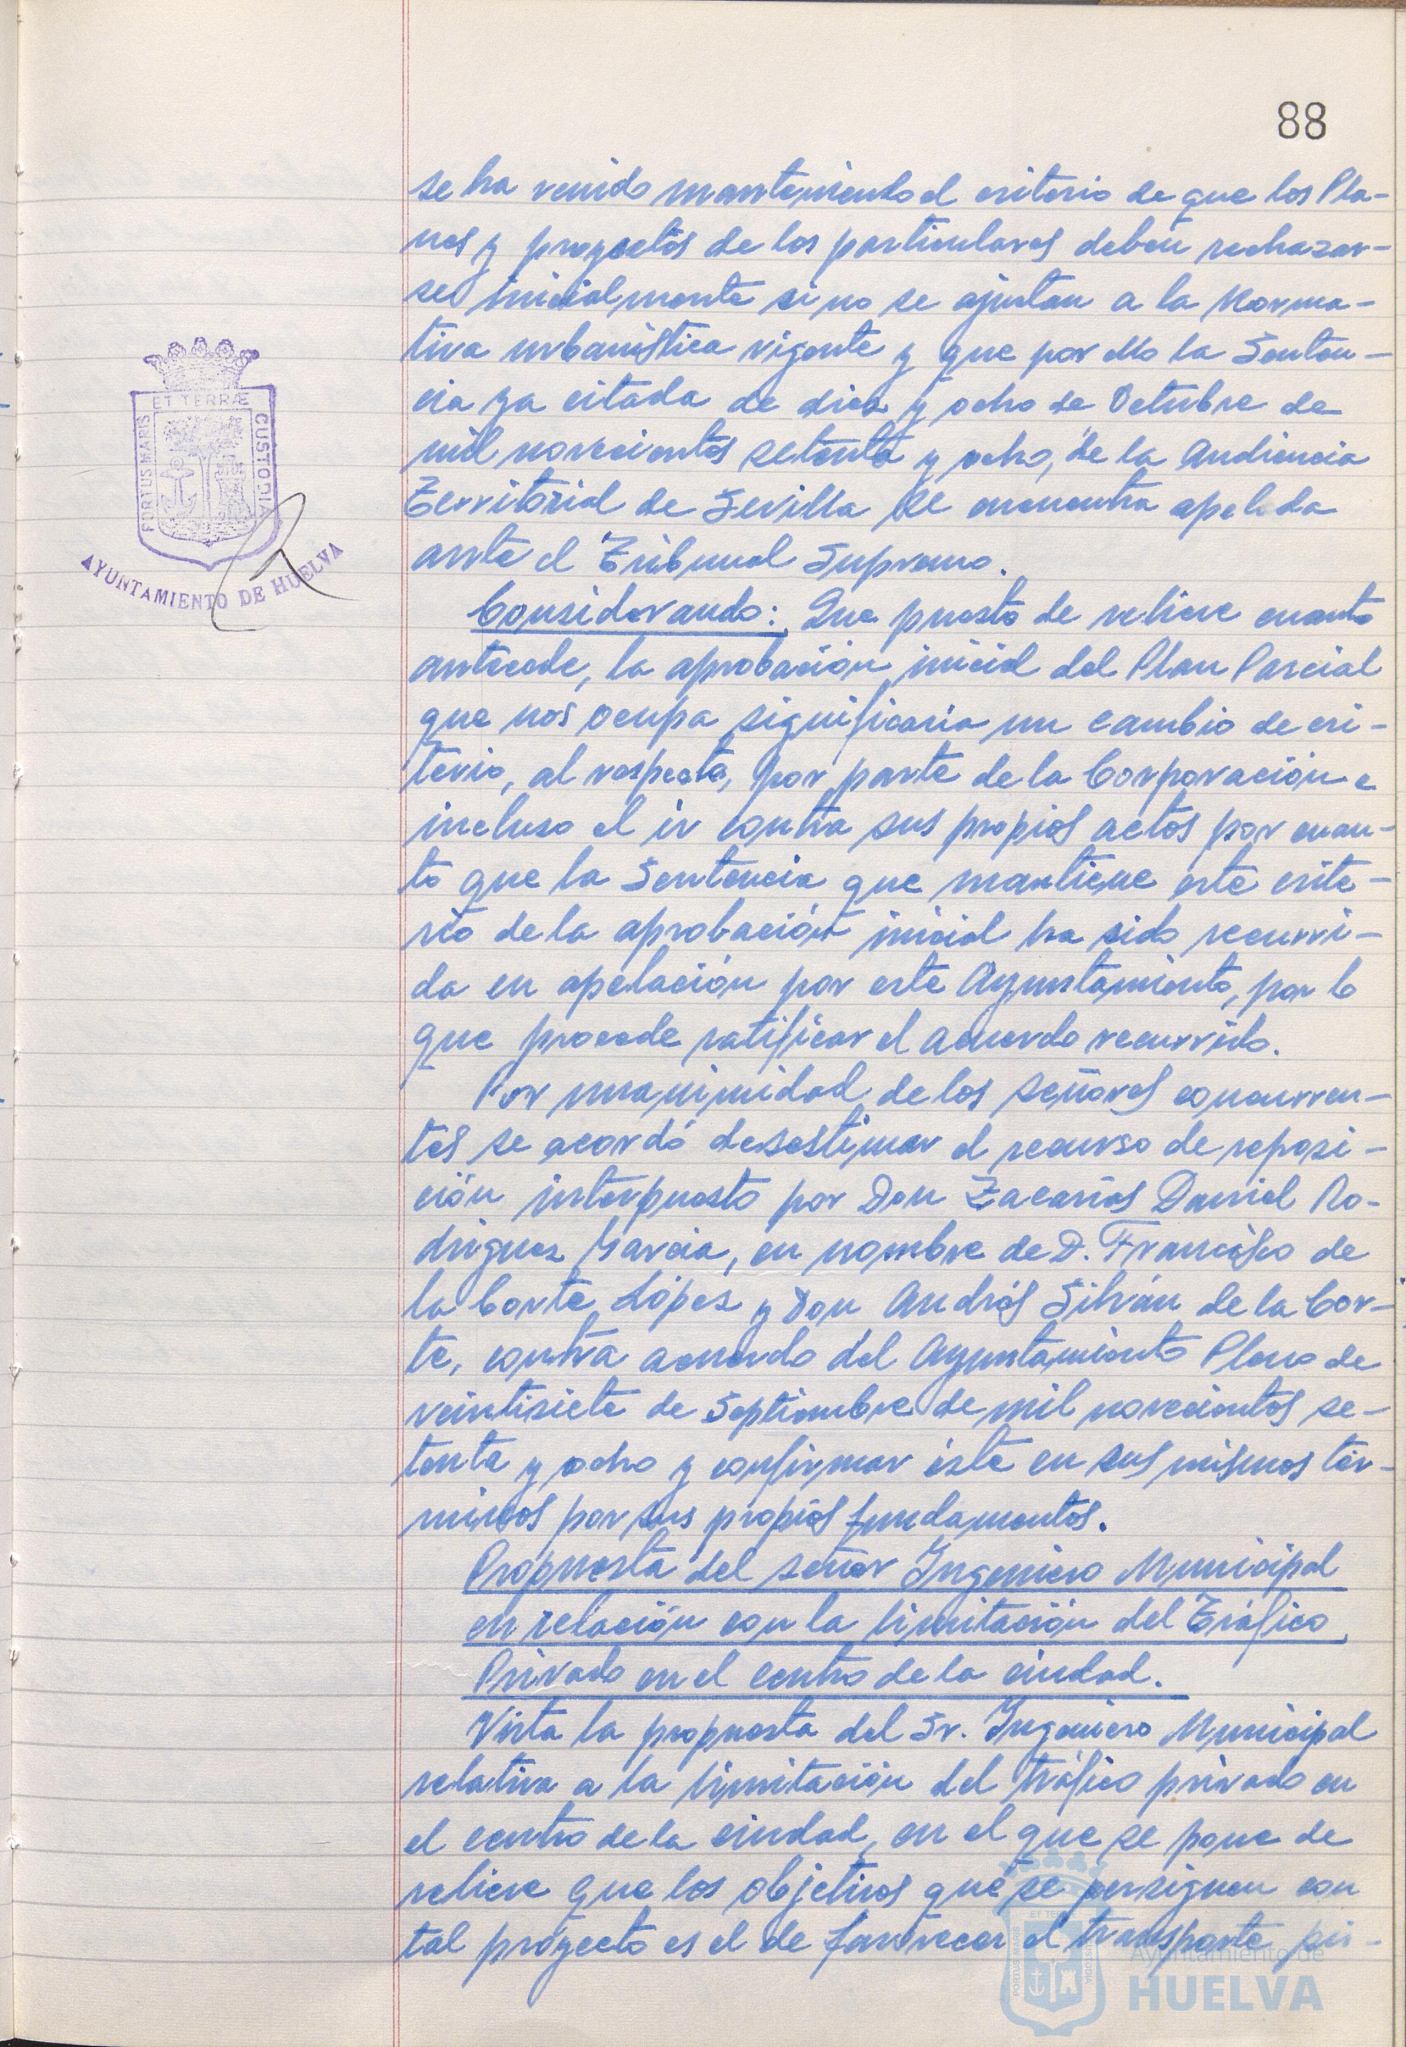 88
se ha venido manteniendo el criterio de que los Pla-
nes y proyectos de los particulares deben rechazar-
se inicialmente si no se ajustan a la Norma-
tiva urbanística vigente y que por ello la Senten-
cia ya citada de diez y ocho de Octubre de
mil novecientos setenta y ocho, de la Audiencia
Territorial de Sevilla se encuentra apelada
ante el Tribunal Supremo.
Considerando: Que puesto de relieve cuanto
antecede, la aprobación inicial del Plan Parcial
que nos ocupa significaría un cambio de cri-
terio, al respecto, por parte de la Corporación e
incluso el ir contra sus propios actos por cuan-
to que la Sentencia que mantiene este crite-
rio de la aprobación inicial ha sido recurri-
da en apelación por este Ayuntamiento, por lo
que procede ratificar el acuerdo recurrido.
Por unanimidad de los señores concurren-
tes se acordó desestimar el recurso de reposi-
ción interpuesto por Don Zacarías Daniel Ro-
driguez Garcia, en nombre de D. Francisco de
la Corte López y Don Andrés Silván de la Cor-
te, contra acuerdo del Ayuntamiento Pleno de
veintisiete de Septiembre de mil novecientos se-
tenta y ocho y confirmar éste en sus mismos tér-
minos por sus propios fundamentos.
Propuesta del señor Ingeniero Municipal
en relación con la limitación del Tráfico
Privado en el centro de la ciudad.
Vista la propuesta del Sr. Ingeniero Municipal
relativa a la limitación del tráfico privado en
el centro de la ciudad, en el que se pone de
relieve que los objetivos que se persiguen con
tal proyecto es el de favorecer el transporte pú-
PORTUS MARIS ET TERRÆ CUSTODIA
AYUNTAMIENTO DE HUELVA
PORTUS MARIS ET TERRÆ CUSTODIA
Ayuntamiento de
HUELVA